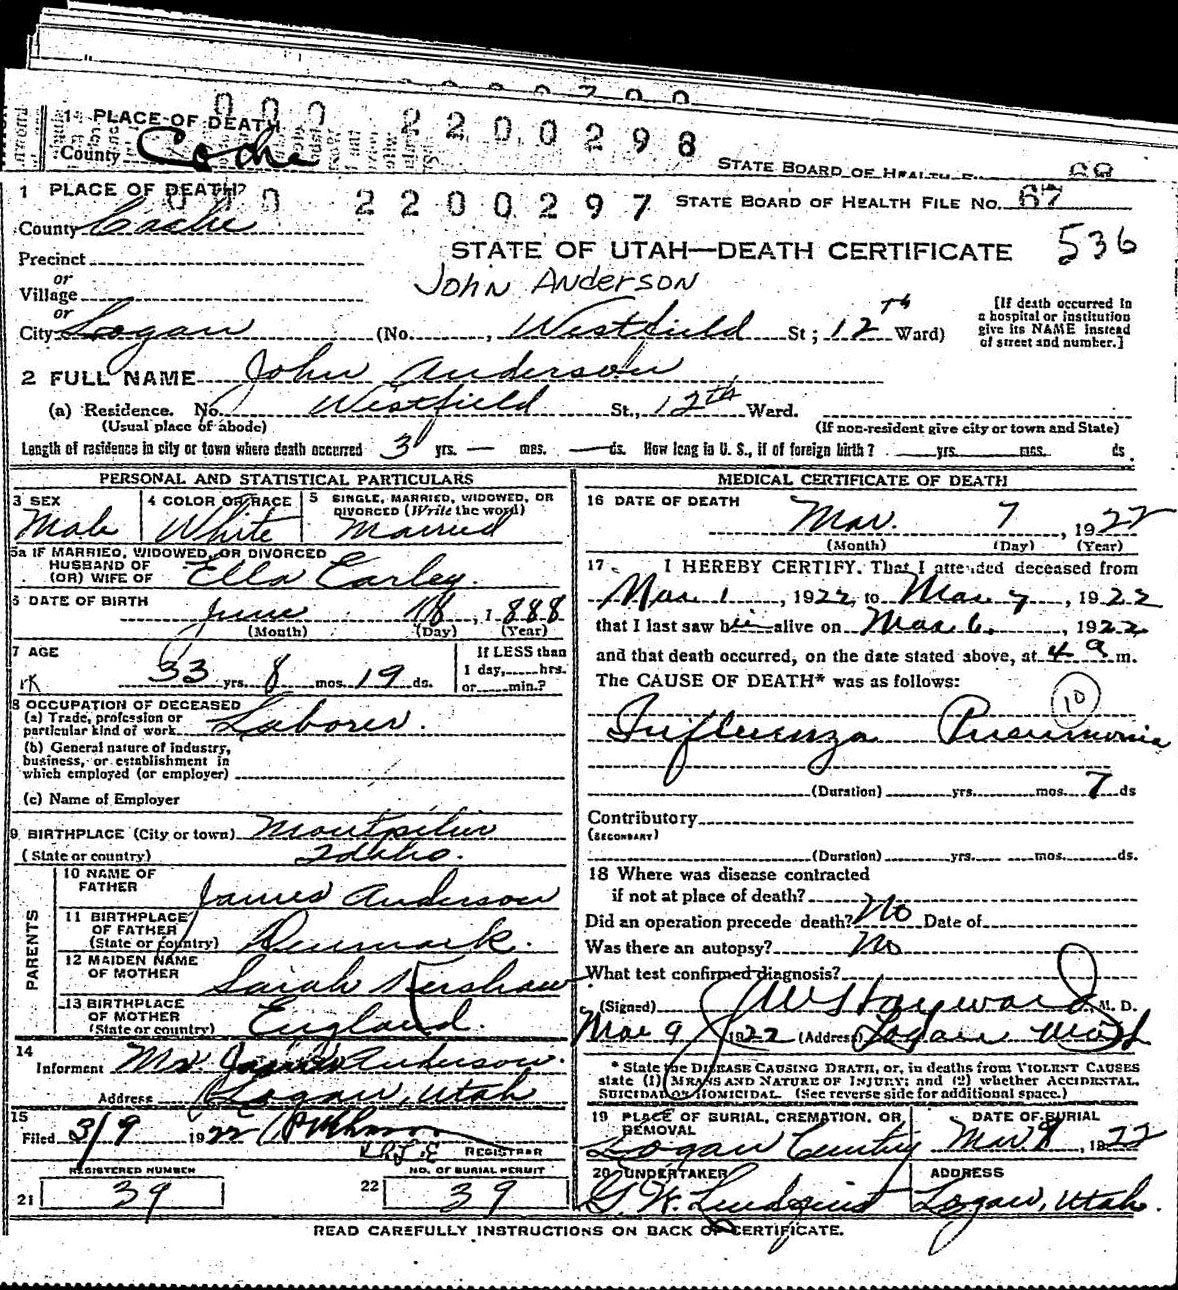 0 0 0 2 2 0 0 2 9 8
1 PLACE OF DEATH
County Cache
STATE BOARD OF HEALTH F 68
1 PLACE OF DEATH
0 0 0 2 2 0 0 2 9 7
STATE BOARD OF HEALTH FILE NO. 67
County Cache
STATE OF UTAH—DEATH CERTIFICATE 536
Precinct
John Anderson
or
Village
or
City Logan (No. , Westfield St; 12th Ward)
[If death occurred in
a hospital or institution
give its NAME instead
of street and number.]
2 FULL NAME John Anderson
(a) Residence. No. Westfield St., 12th Ward.
(Usual place of abode)
(If non-resident give city or town and State)
Length of residence in city or town where death occurred 3 yrs. — mos. — ds. How long in U. S., if of foreign birth? yrs. mos. ds.
PERSONAL AND STATISTICAL PARTICULARS
3 SEX
Male
4 COLOR OR RACE
White
5 SINGLE, MARRIED, WIDOWED, OR
DIVORCED (Write the word)
Married
5a IF MARRIED, WIDOWED, OR DIVORCED
HUSBAND OF
(OR) WIFE OF Ella Earley.
6 DATE OF BIRTH
June 18, 1888
(Month) (Day) (Year)
7 AGE
33 yrs. 8 mos. 19 ds.
If LESS than
1 day, hrs.
or min.?
8 OCCUPATION OF DECEASED
(a) Trade, profession or
particular kind of work Laborer.
(b) General nature of industry,
business, or establishment in
which employed (or employer)
(c) Name of Employer
9 BIRTHPLACE (City or town) Montpilier
(State or country) Idaho.
PARENTS
10 NAME OF
FATHER James Anderson
11 BIRTHPLACE
OF FATHER
(State or country) Denmark.
12 MAIDEN NAME
OF MOTHER Sarah Kershaw
13 BIRTHPLACE
OF MOTHER
(State or country) England.
14
Informent Mr. James Anderson.
Address Logan, Utah
15
Filed 3/9 1922
REGISTRAR
REGISTERED NUMBER
21 39
NO. OF BURIAL PERMIT
22 39
MEDICAL CERTIFICATE OF DEATH
16 DATE OF DEATH
Mar. 7, 1922
(Month) (Day) (Year)
17 I HEREBY CERTIFY. That I attended deceased from
Mar 1, 1922, to Mar 7, 1922
that I last saw him alive on Mar 6, 1922
and that death occurred, on the date stated above, at 4 a m.
The CAUSE OF DEATH* was as follows:
10
Influenza Pneumonia
(Duration) yrs. mos. 7 ds
Contributory
(SECONDARY)
(Duration) yrs. mos. ds.
18 Where was disease contracted
if not at place of death?
Did an operation precede death? No Date of
Was there an autopsy? No
What test confirmed diagnosis?
(Signed) J W Hayward M. D.
Mar 9 1922 (Address) Logan Utah
* State the DISEASE CAUSING DEATH, or, in deaths from VIOLENT CAUSES
state (1) MEANS AND NATURE OF INJURY; and (2) whether ACCIDENTAL,
SUICIDAL OR HOMICIDAL. (See reverse side for additional space.)
19 PLACE OF BURIAL, CREMATION, OR
REMOVAL
Logan Cemetry
DATE OF BURIAL
Mar 9, 1922
20 UNDERTAKER
G. W. Lindquist
ADDRESS
Logan, Utah.
READ CAREFULLY INSTRUCTIONS ON BACK OF CERTIFICATE.